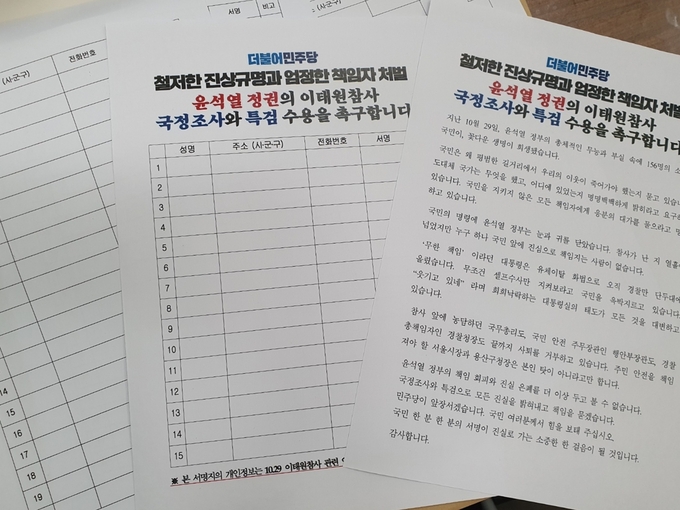 서명
비고
(사·군구)
전화번호
14
15
16
17
18
19
더불어민주당
철저한 진상규명과 엄정한 책임자 처벌
윤석열 정권의 이태원참사
국정조사와 특검 수용을 촉구합니다
성명
주소 (사·군구)
전화번호
서명
1
2
3
4
5
6
7
8
9
10
11
12
13
14
15
※ 본 서명지의 개인정보는 10.29 이태원참사 관련
더불어민주당
철저한 진상규명과 엄정한 책임자 처벌
윤석열 정권의 이태원참사
국정조사와 특검 수용을 촉구합니다
지난 10월 29일, 윤석열 정부의 총체적인 무능과 부실 속에 156명의 소
국민이, 꽃다운 생명이 희생됐습니다.
국민은 왜 평범한 길거리에서 우리의 이웃이 죽어가야 했는지 묻고 있습
도대체 국가는 무엇을 했고, 어디에 있었는지 명명백백하게 밝히라고 요구하
있습니다. 국민을 지키지 않은 모든 책임자에게 응분의 대가를 물으라고 명
하고 있습니다.
국민의 명령에 윤석열 정부는 눈과 귀를 닫았습니다. 참사가 난 지 열흘이
넘었지만 누구 하나 국민 앞에 진실으로 책임지는 사람이 없습니다.
‘무한 책임’ 이라던 대통령은 유체이탈 화법으로 오직 경찰만 단두대에
올렸습니다. 무조건 셀프수사만 지켜보라고 국민을 윽박지르고 있습니다.
“웃기고 있네” 라며 희희낙락하는 대통령실의 태도가 모든 것을 대변하고
있습니다.
참사 앞에 농담하던 국무총리도, 국민 안전 주무장관인 행안부장관도, 경찰
총책임자인 경찰청장도 끝까지 사퇴를 거부하고 있습니다. 주민 안전을 책임
져야 할 서울시장과 용산구청장은 본인 탓이 아니라고만 합니다.
윤석열 정부의 책임 회피와 진실 은폐를 더 이상 두고 볼 수 없습니다.
국정조사와 특검으로 모든 진실을 밝혀내고 책임을 묻겠습니다.
민주당이 앞장서겠습니다. 국민 여러분께서 힘을 보태 주십시오.
국민 한 분 한 분의 서명이 진실로 가는 소중한 한 걸음이 될 것입니다.
감사합니다.